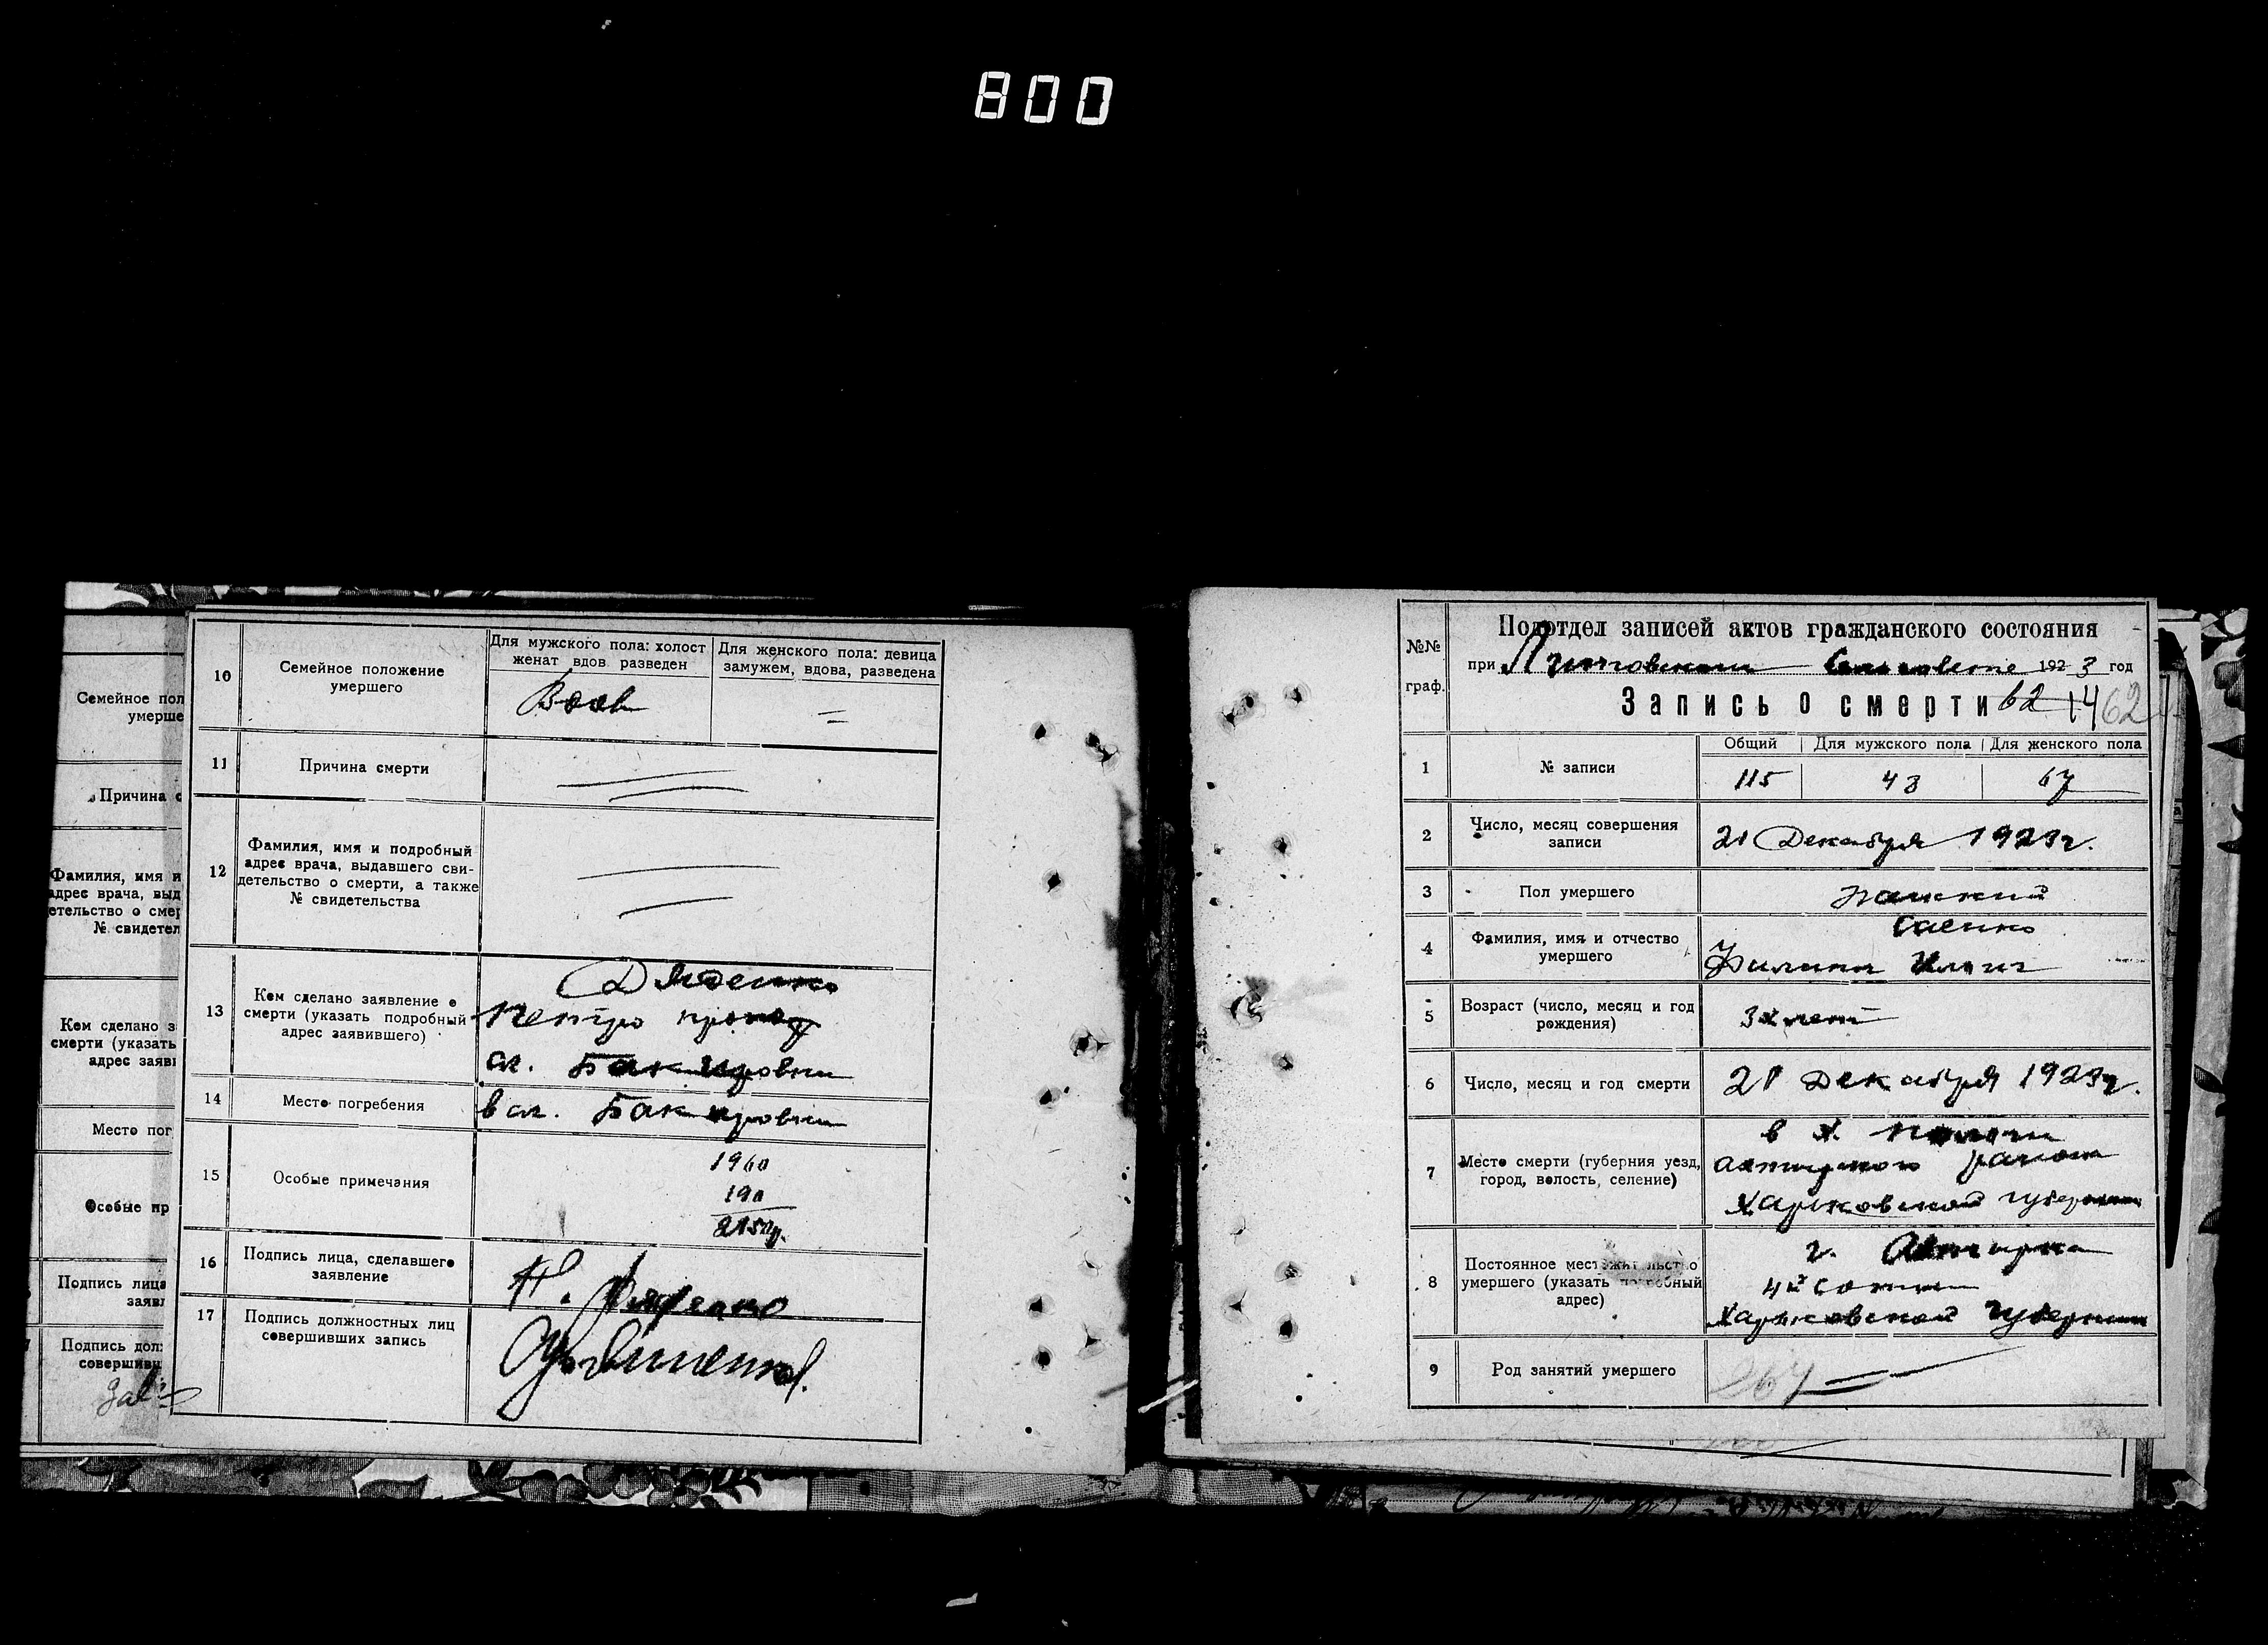 800
Семейное пол
умерше
Причина с
Фамилия, имя и
адрес врача, выд
етельство о смер
№ свидетел
Кем сделано за
смерти (указать
адрес заяви
Место пог
Особые пр
Подпись лица
заявл
Подпись долж
совершивш
10
Семейное положение
умершего
Для мужского пола: холост
женат вдов разведен
Для женского пола: девица
замужем, вдова, разведена
Вдов
=
11
Причина смерти
12
Фамилия, имя и подробный
адрес врача, выдавшего сви-
детельство о смерти, а также
№ свидетельства
13
Кем сделано заявление о
смерти (указать подробный
адрес заявившего)
Дяденко
Петро
сл. Бакировки
14
Место погребения
в сл. Бакировки
15
Особые примечания
1960
190
2150р.
16
Подпись лица, сделавшего
заявление
П. Дяденко
17
Подпись должностных лиц
совершивших запись
№№
граф.
Подотдел записей актов гражданского состояния
при 1923 год
Запись о смерти 62 1462
1
№ записи
Общий
Для мужского пола
Для женского пола
115
48
67
2
Число, месяц совершения
записи
21 Декабря 1923г.
3
Пол умершего
4
Фамилия, имя и отчество
умершего
Саенко
Филипп Ильич
5
Возраст (число, месяц и год
рождения)
лет
6
Число, месяц и год смерти
21 Декабря 1923г.
7
Место смерти (губерния уезд,
город, волость, селение)
в х.
Ахтирского района
Харьковской губернии
8
Постоянное местожительство
умершего (указать подробный
адрес)
г. Ахтирка
4й сотни
Харьковской Губернии
9
Род занятий умершего
67